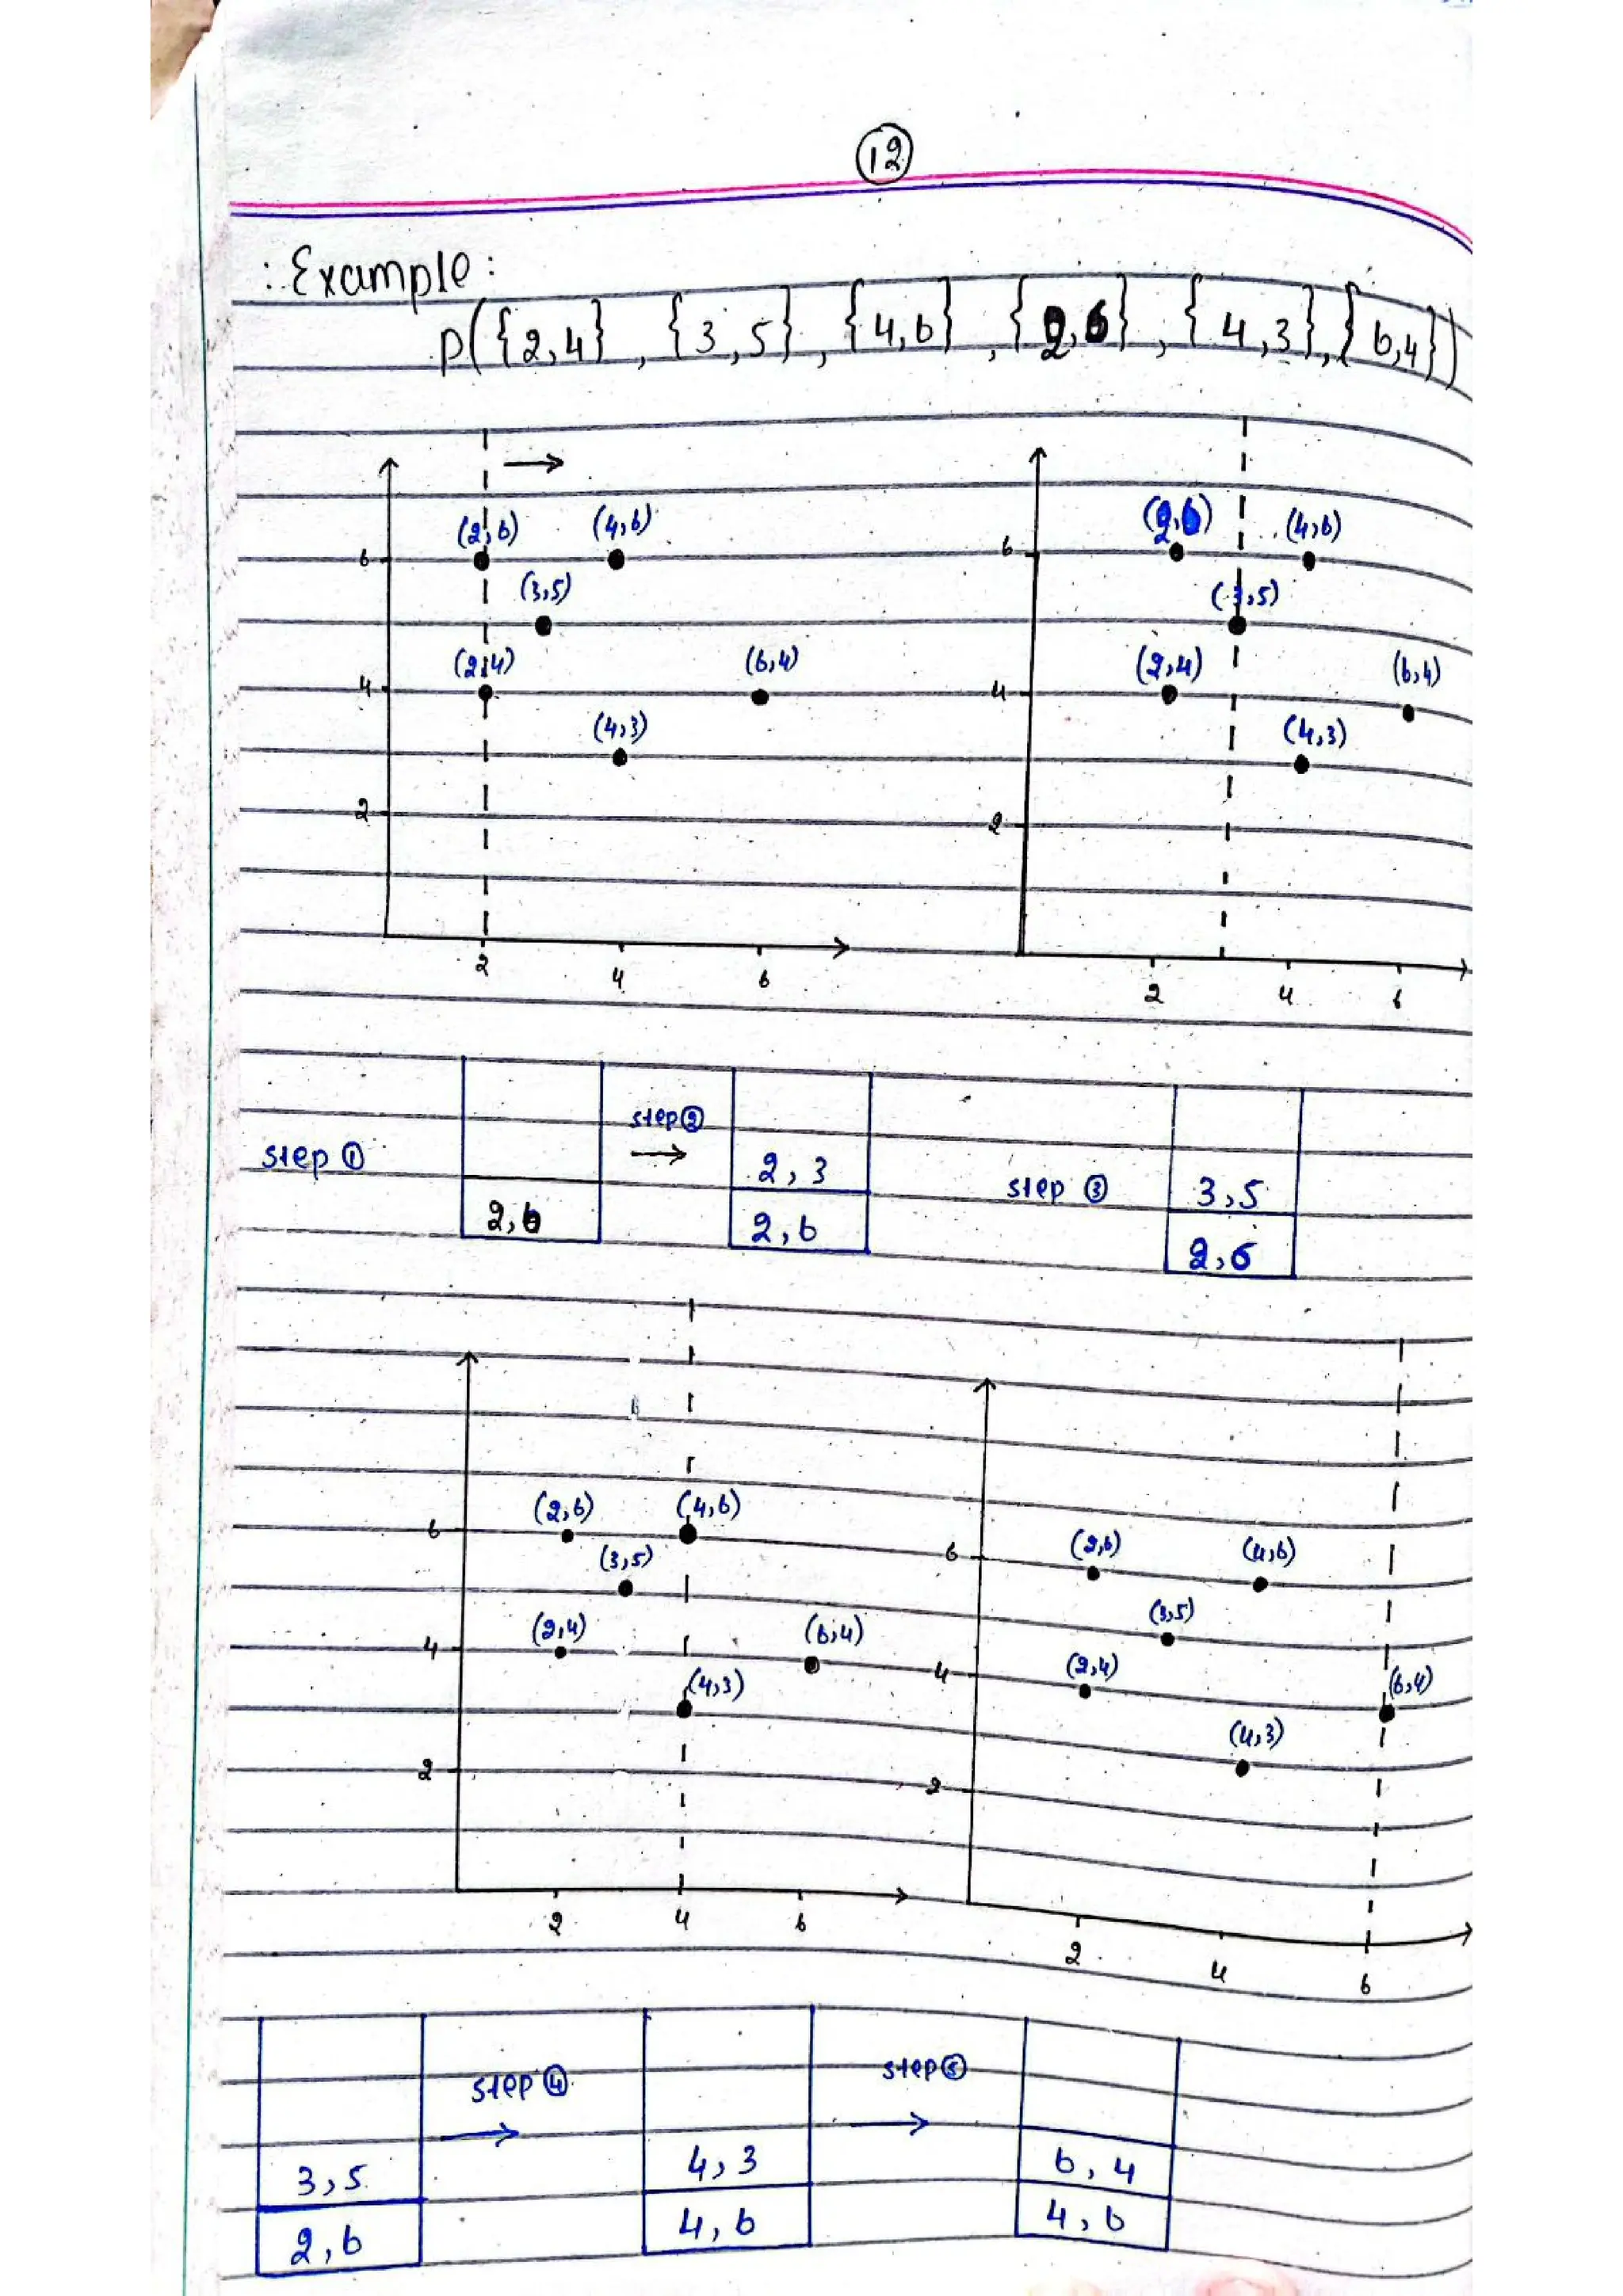 12
: Example :
P({2,4} , {3,5} , {4,6} , {2,6} , {4,3} , {6,4})
(2,6) (4,6)
6
(3,5)
(2,4) (6,4)
4
(4,3)
2
2 4 6
(2,6) (4,6)
6
(3,5)
(2,4) (6,4)
4
(4,3)
2
2 4 6
step ①
2,6
step ②
→
2,3
2,6
step ③
3,5
2,6
(2,6) (4,6)
6
(3,5)
(2,4) (6,4)
4
(4,3)
2
2 4 6
(2,6) (4,6)
6
(3,5)
(2,4) (6,4)
4
(4,3)
2
2 4 6
3,5
2,6
step ④
→
4,3
4,6
step ⑤
→
6,4
4,6